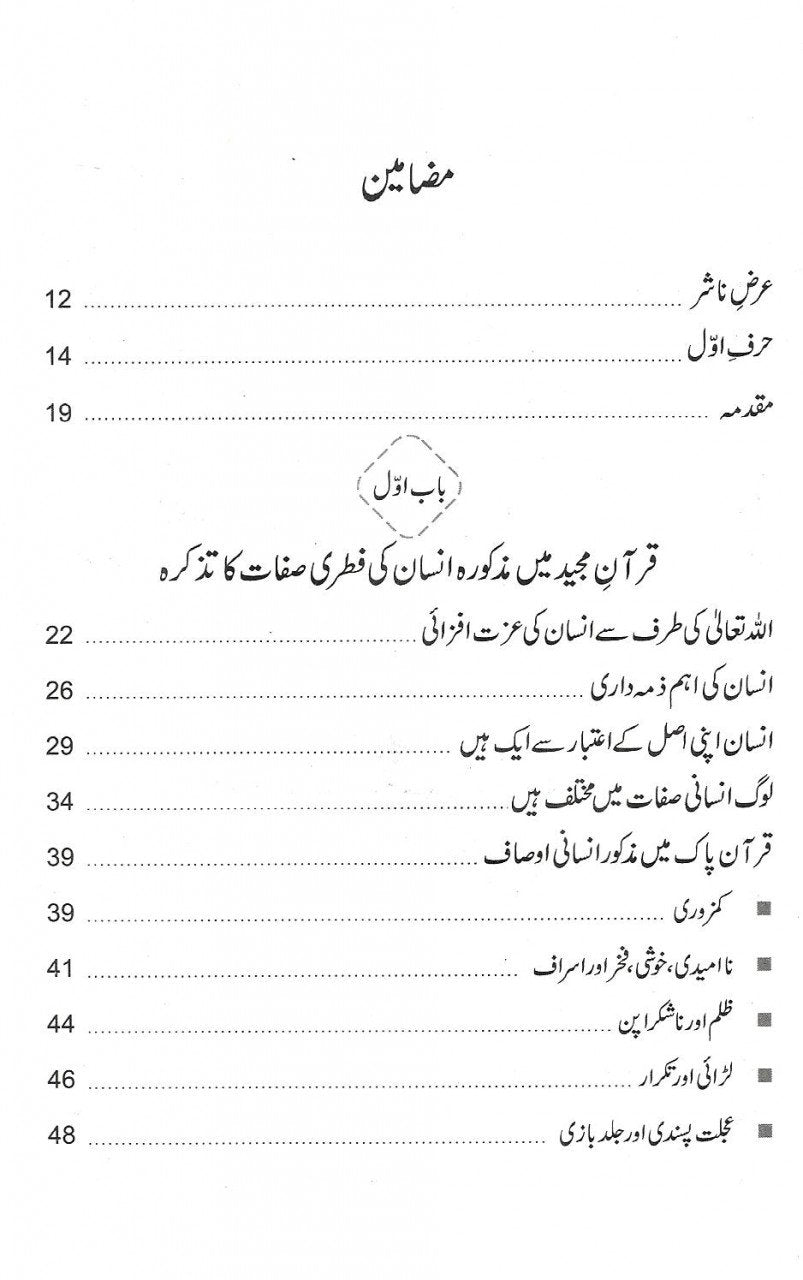 مضامین
عرضِ ناشر ........ 12
حرفِ اوّل ........ 14
مقدمہ ........ 19
باب اوّل
قرآنِ مجید میں مذکورہ انسان کی فطری صفات کا تذکرہ
اللہ تعالیٰ کی طرف سے انسان کی عزت افزائی ........ 22
انسان کی اہم ذمہ داری ........ 26
انسان اپنی اصل کے اعتبار سے ایک ہیں ........ 29
لوگ انسانی صفات میں مختلف ہیں ........ 34
قرآن پاک میں مذکور انسانی اوصاف ........ 39
■ کمزوری ........ 39
■ ناامیدی، خوشی، فخر اور اسراف ........ 41
■ ظلم اور ناشکراپن ........ 44
■ لڑائی اور تکرار ........ 46
■ عجلت پسندی اور جلد بازی ........ 48